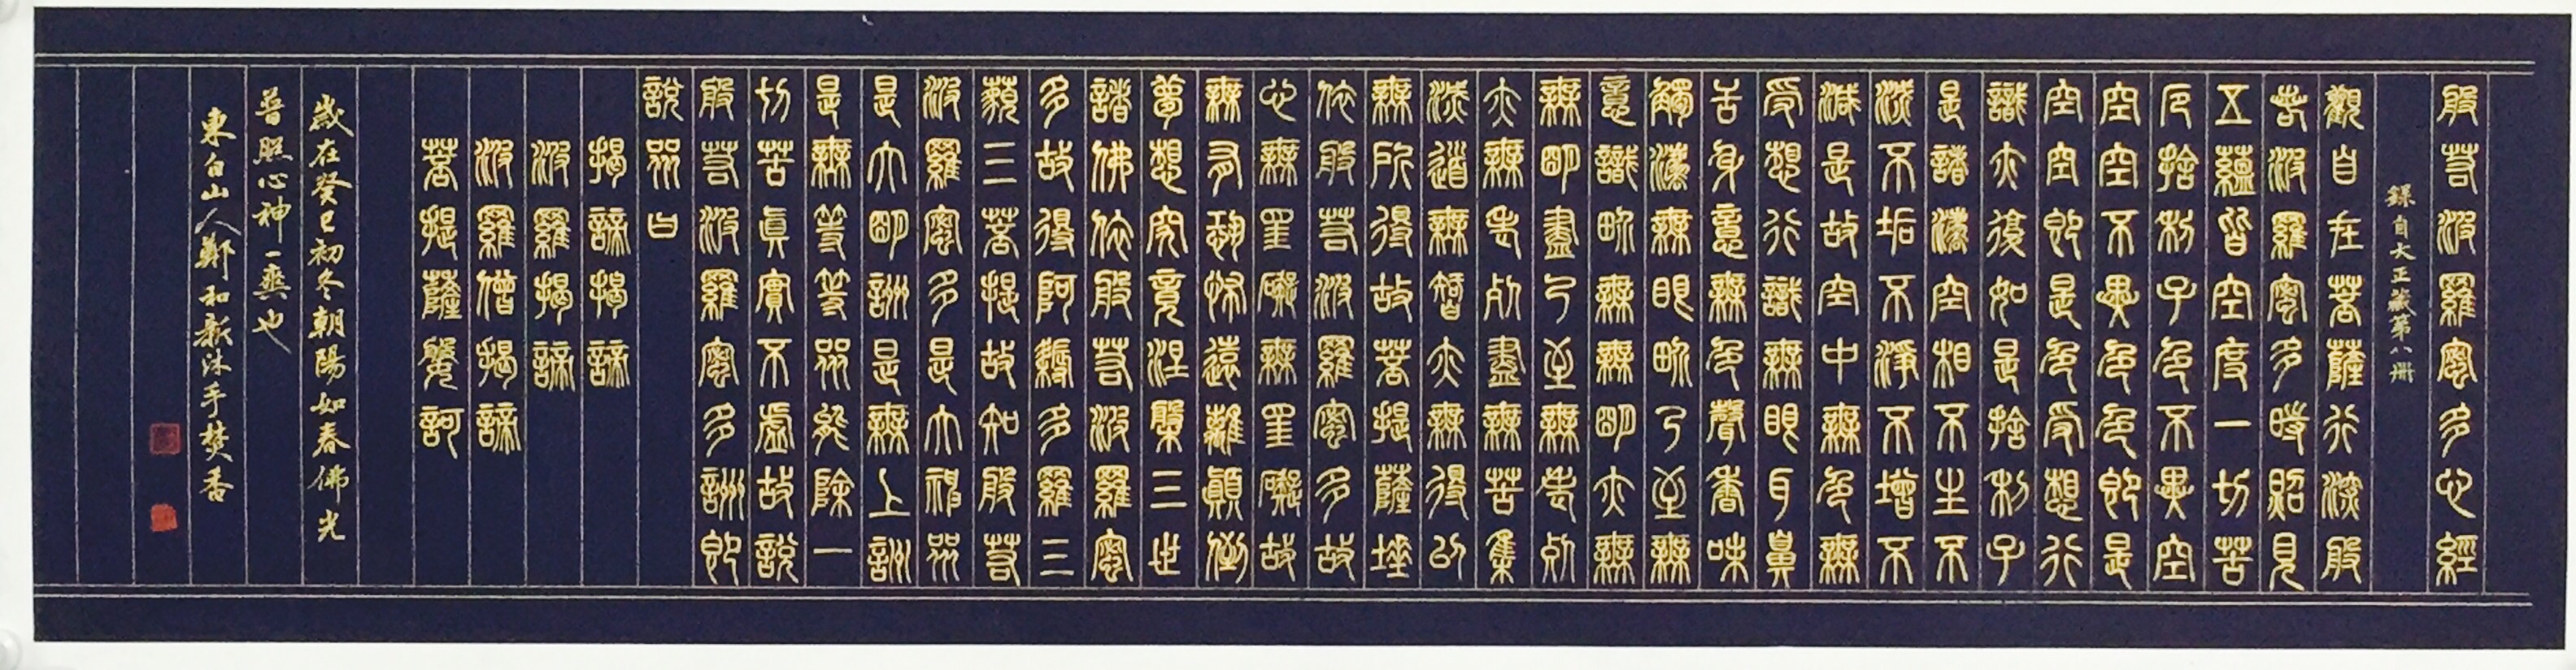 般若波羅蜜多心經
錄自大正藏第八冊
觀自在菩薩行深般
若波羅蜜多時照見
五蘊皆空度一切苦
厄捨利子色不異空
空空不異色色即是
空空即是色受想行
識亦復如是捨利子
是諸法空相不生不
滅不垢不淨不增不
減是故空中無色無
受想行識無眼耳鼻
舌身意無色聲香味
觸法無眼界乃至無
意識界無無明亦無
無明盡乃至無老死
亦無老死盡無苦集
滅道無智亦無得以
無所得故菩提薩埵
依般若波羅蜜多故
心無罣礙無罣礙故
無有恐怖遠離顛倒
夢想究竟涅槃三世
諸佛依般若波羅蜜
多故得阿耨多羅三
藐三菩提故知般若
波羅蜜多是大神咒
是大明詶是無上詶
是無等等咒能除一
切苦真實不虛故說
般若波羅蜜多詶即
說咒曰
揭諦揭諦
波羅揭諦
波羅僧揭諦
菩提薩婆訶
歲在癸巳初冬朝陽如春佛光
普照心神一爽也
東白山人鄭和新沐手焚香